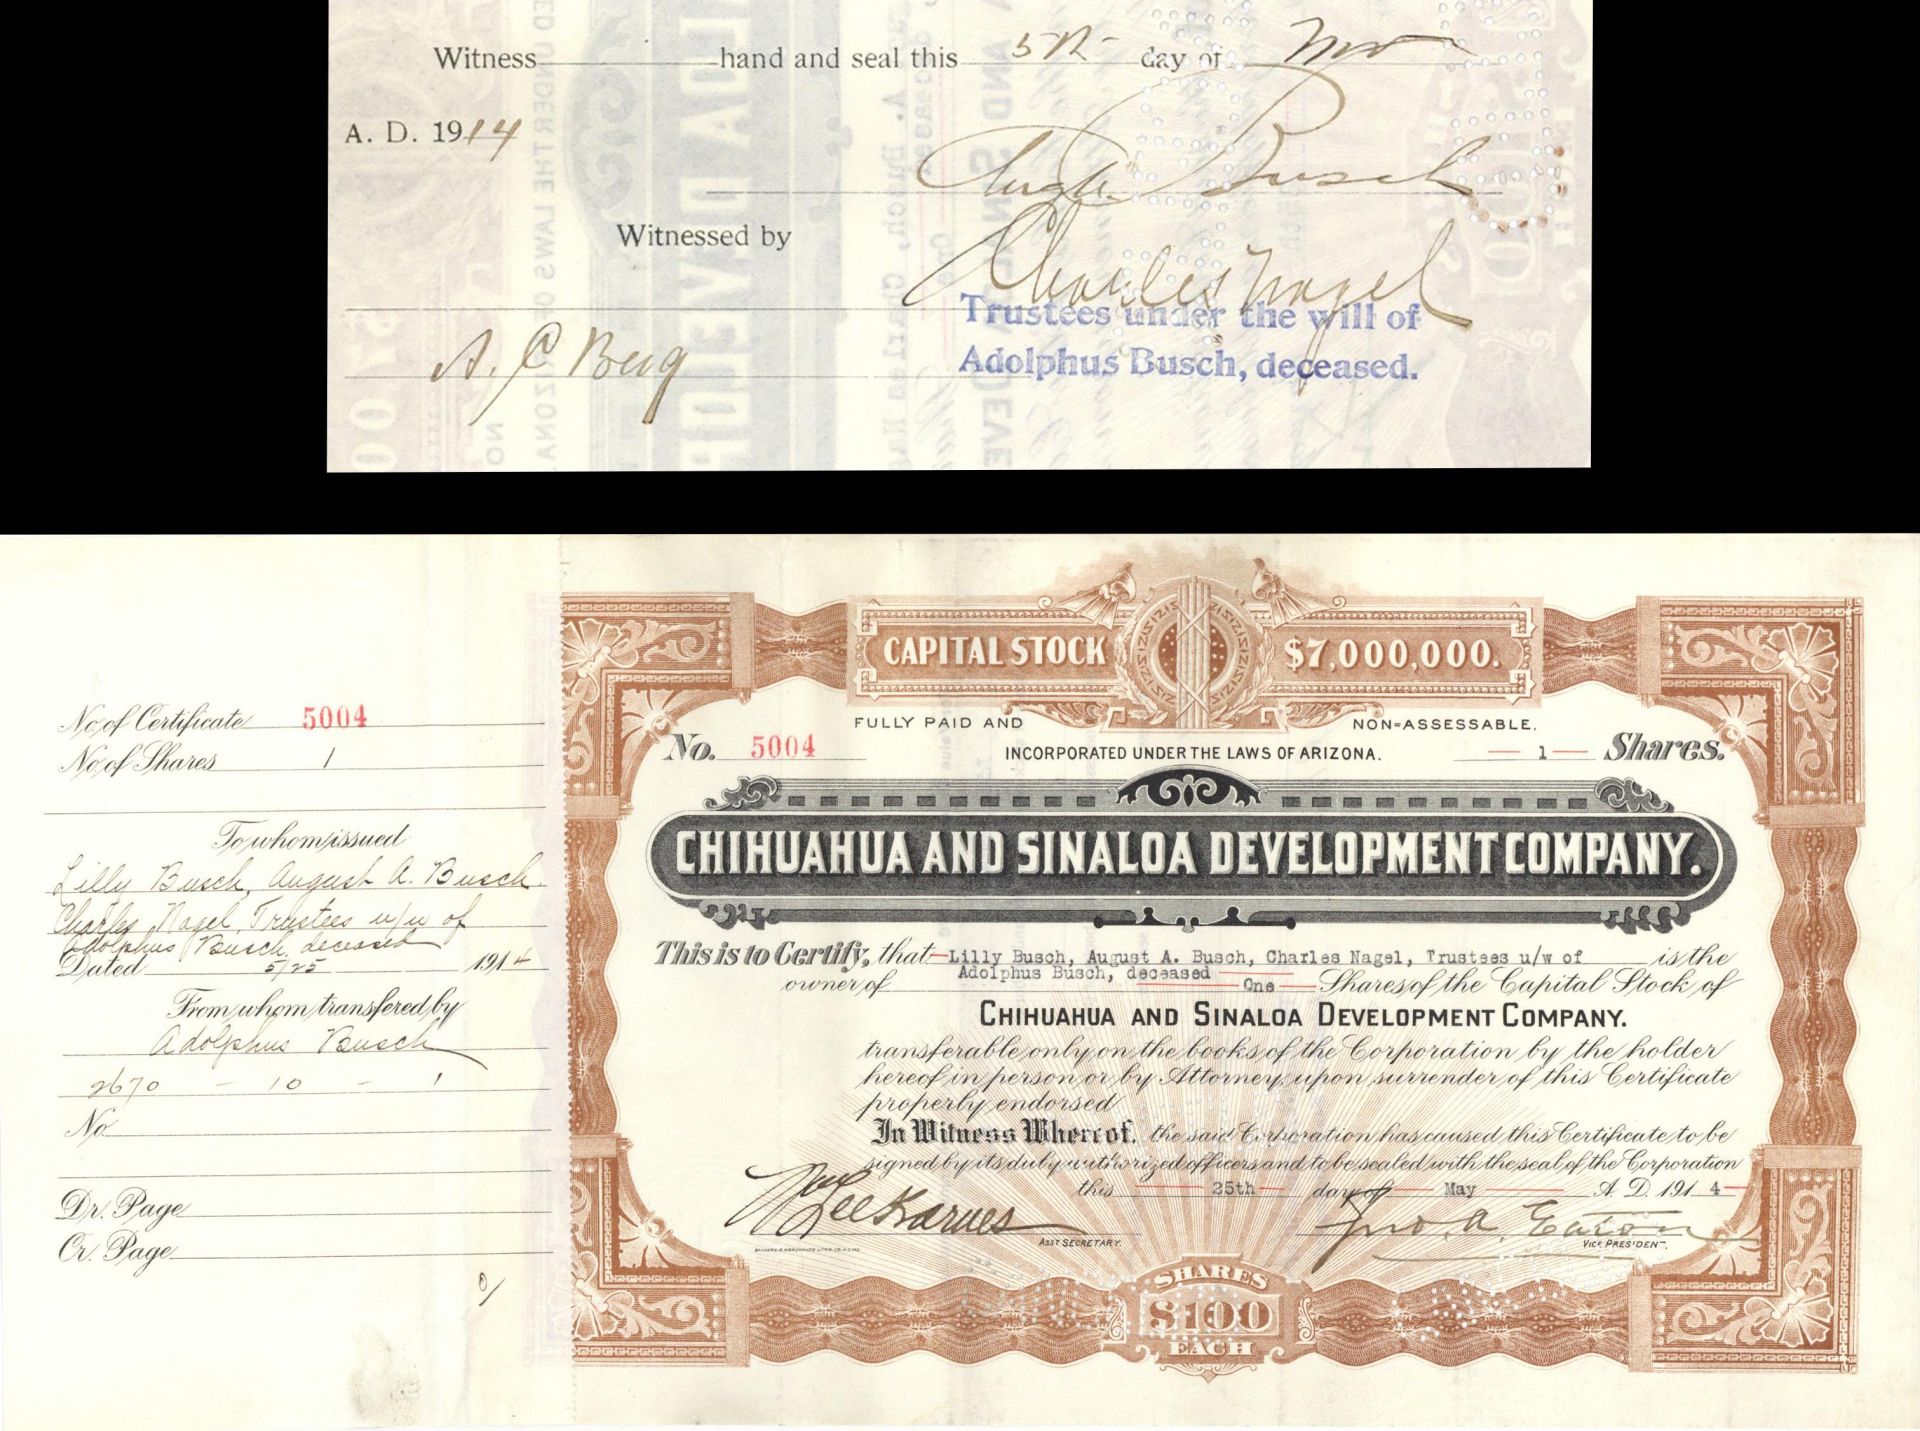 Witness hand and seal this 5th day of Nov
A. D. 1914
Aug. A. Busch
Witnessed by
Charles Nagel
Trustees under the will of
Adolphus Busch, deceased.
A. C. Berg
No. of Certificate 5004
No. of Shares 1
To whom issued
Lilly Busch, August A. Busch
Charles Nagel, Trustees u/w of
Adolphus Busch, deceased
Dated 5/25 1914
From whom transferred by
Adolphus Busch
2670 - 10 - 1
No
Dr. Page
Cr. Page
CAPITAL STOCK $7,000,000.
FULLY PAID AND NON-ASSESSABLE.
No. 5004 INCORPORATED UNDER THE LAWS OF ARIZONA. 1 Shares.
CHIHUAHUA AND SINALOA DEVELOPMENT COMPANY.
This is to Certify, that Lilly Busch, August A. Busch, Charles Nagel, Trustees u/w of is the
owner of Adolphus Busch, deceased One Shares of the Capital Stock of
CHIHUAHUA AND SINALOA DEVELOPMENT COMPANY.
transferable only on the books of the Corporation by the holder
hereof in person or by Attorney, upon surrender of this Certificate
properly endorsed
In Witness Whereof, the said Corporation has caused this Certificate to be
signed by its duly authorized officers and to be sealed with the seal of the Corporation
this 25th day of May A. D. 1914
Lee Karnes Jno. A. Eaton
ASST SECRETARY. VICE PRESIDENT.
SHARES
$100
EACH